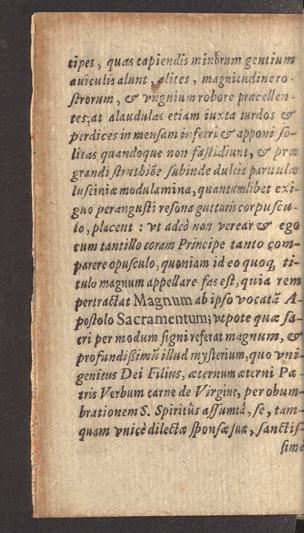 cipes, quas capiendis minorum gentium
auiculis alunt, alites, magnitudine ro-
ſtrorum, & vnguium robore præcellen-
tes; at alaudulas etiam iuxta turdos &
perdices in menſam inferri & apponi ſo-
litas quandoque non faſtidiunt, & præ
grandi ſtruthiõe ſubinde dulcia paruulæ
luſciniæ modulamina, quantumlibet exi-
guo perangusti reſona gutturis corpuſcu-
lo, placent: vt adeò non verear & ego
cum tantillo coram Principe tanto com-
parere opuſculo, quoniam id eo quoq; ti-
tulo magnum appellare fas eſt, quia rem
pertractat Magnum ab ipſo vocatã A-
poſtolo Sacramentum; vtpote quæ ſa-
cri per modum ſigni referat magnum, &
profundißimũ illud myſterium, quo vni-
genitus Dei Filius, æternum æterni Pa-
tris Verbum carne de Virgine, per obum-
brationem S. Spiritûs aſſumtâ, ſe, tam-
quam vnicè dilectæ ſponſæ ſuæ, ſanctiſ-
ſimè